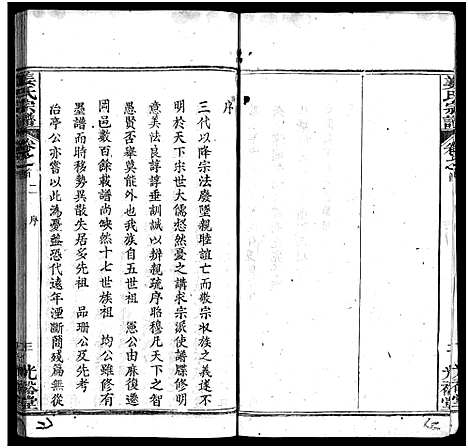 姜氏宗譜
卷之首
序
三代以降宗法廢墜親睦誼亡而敬宗收族之義遂不
明於天下宋世大儒惄然憂之講求宗派使譜牒修明
意美法良諄諄垂訓誡以辨親疏序昭穆凡天下之智
愚賢否舉莫能外也我族自五世祖 恩公由麻復遷
岡邑數百餘載譜尚缺然十七世族祖 均公雖修有
墨譜而時移勢異散失居多先祖 品珊公及先考
治亭公亦嘗以此為憂蓋恐代遠年湮斷簡殘篇無從
姜氏宗譜
卷之首
二
序
光裕堂
光裕堂